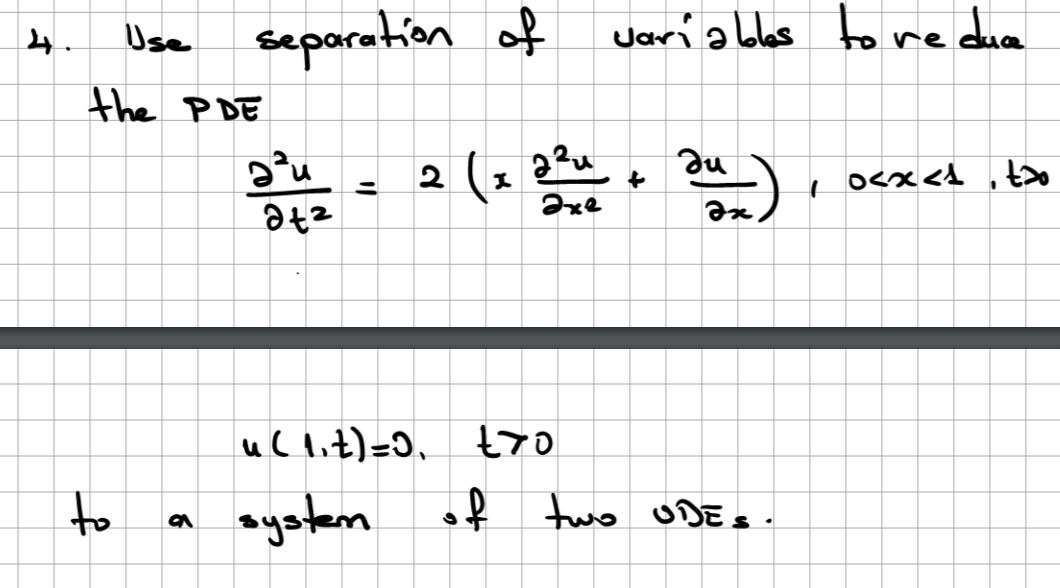 4. Use separation of variables to reduce
the PDE
∂²u/∂t² = 2 (x ∂²u/∂x² + ∂u/∂x), 0<x<1, t>0
u(1,t)=0, t>0
to a system of two ODEs.